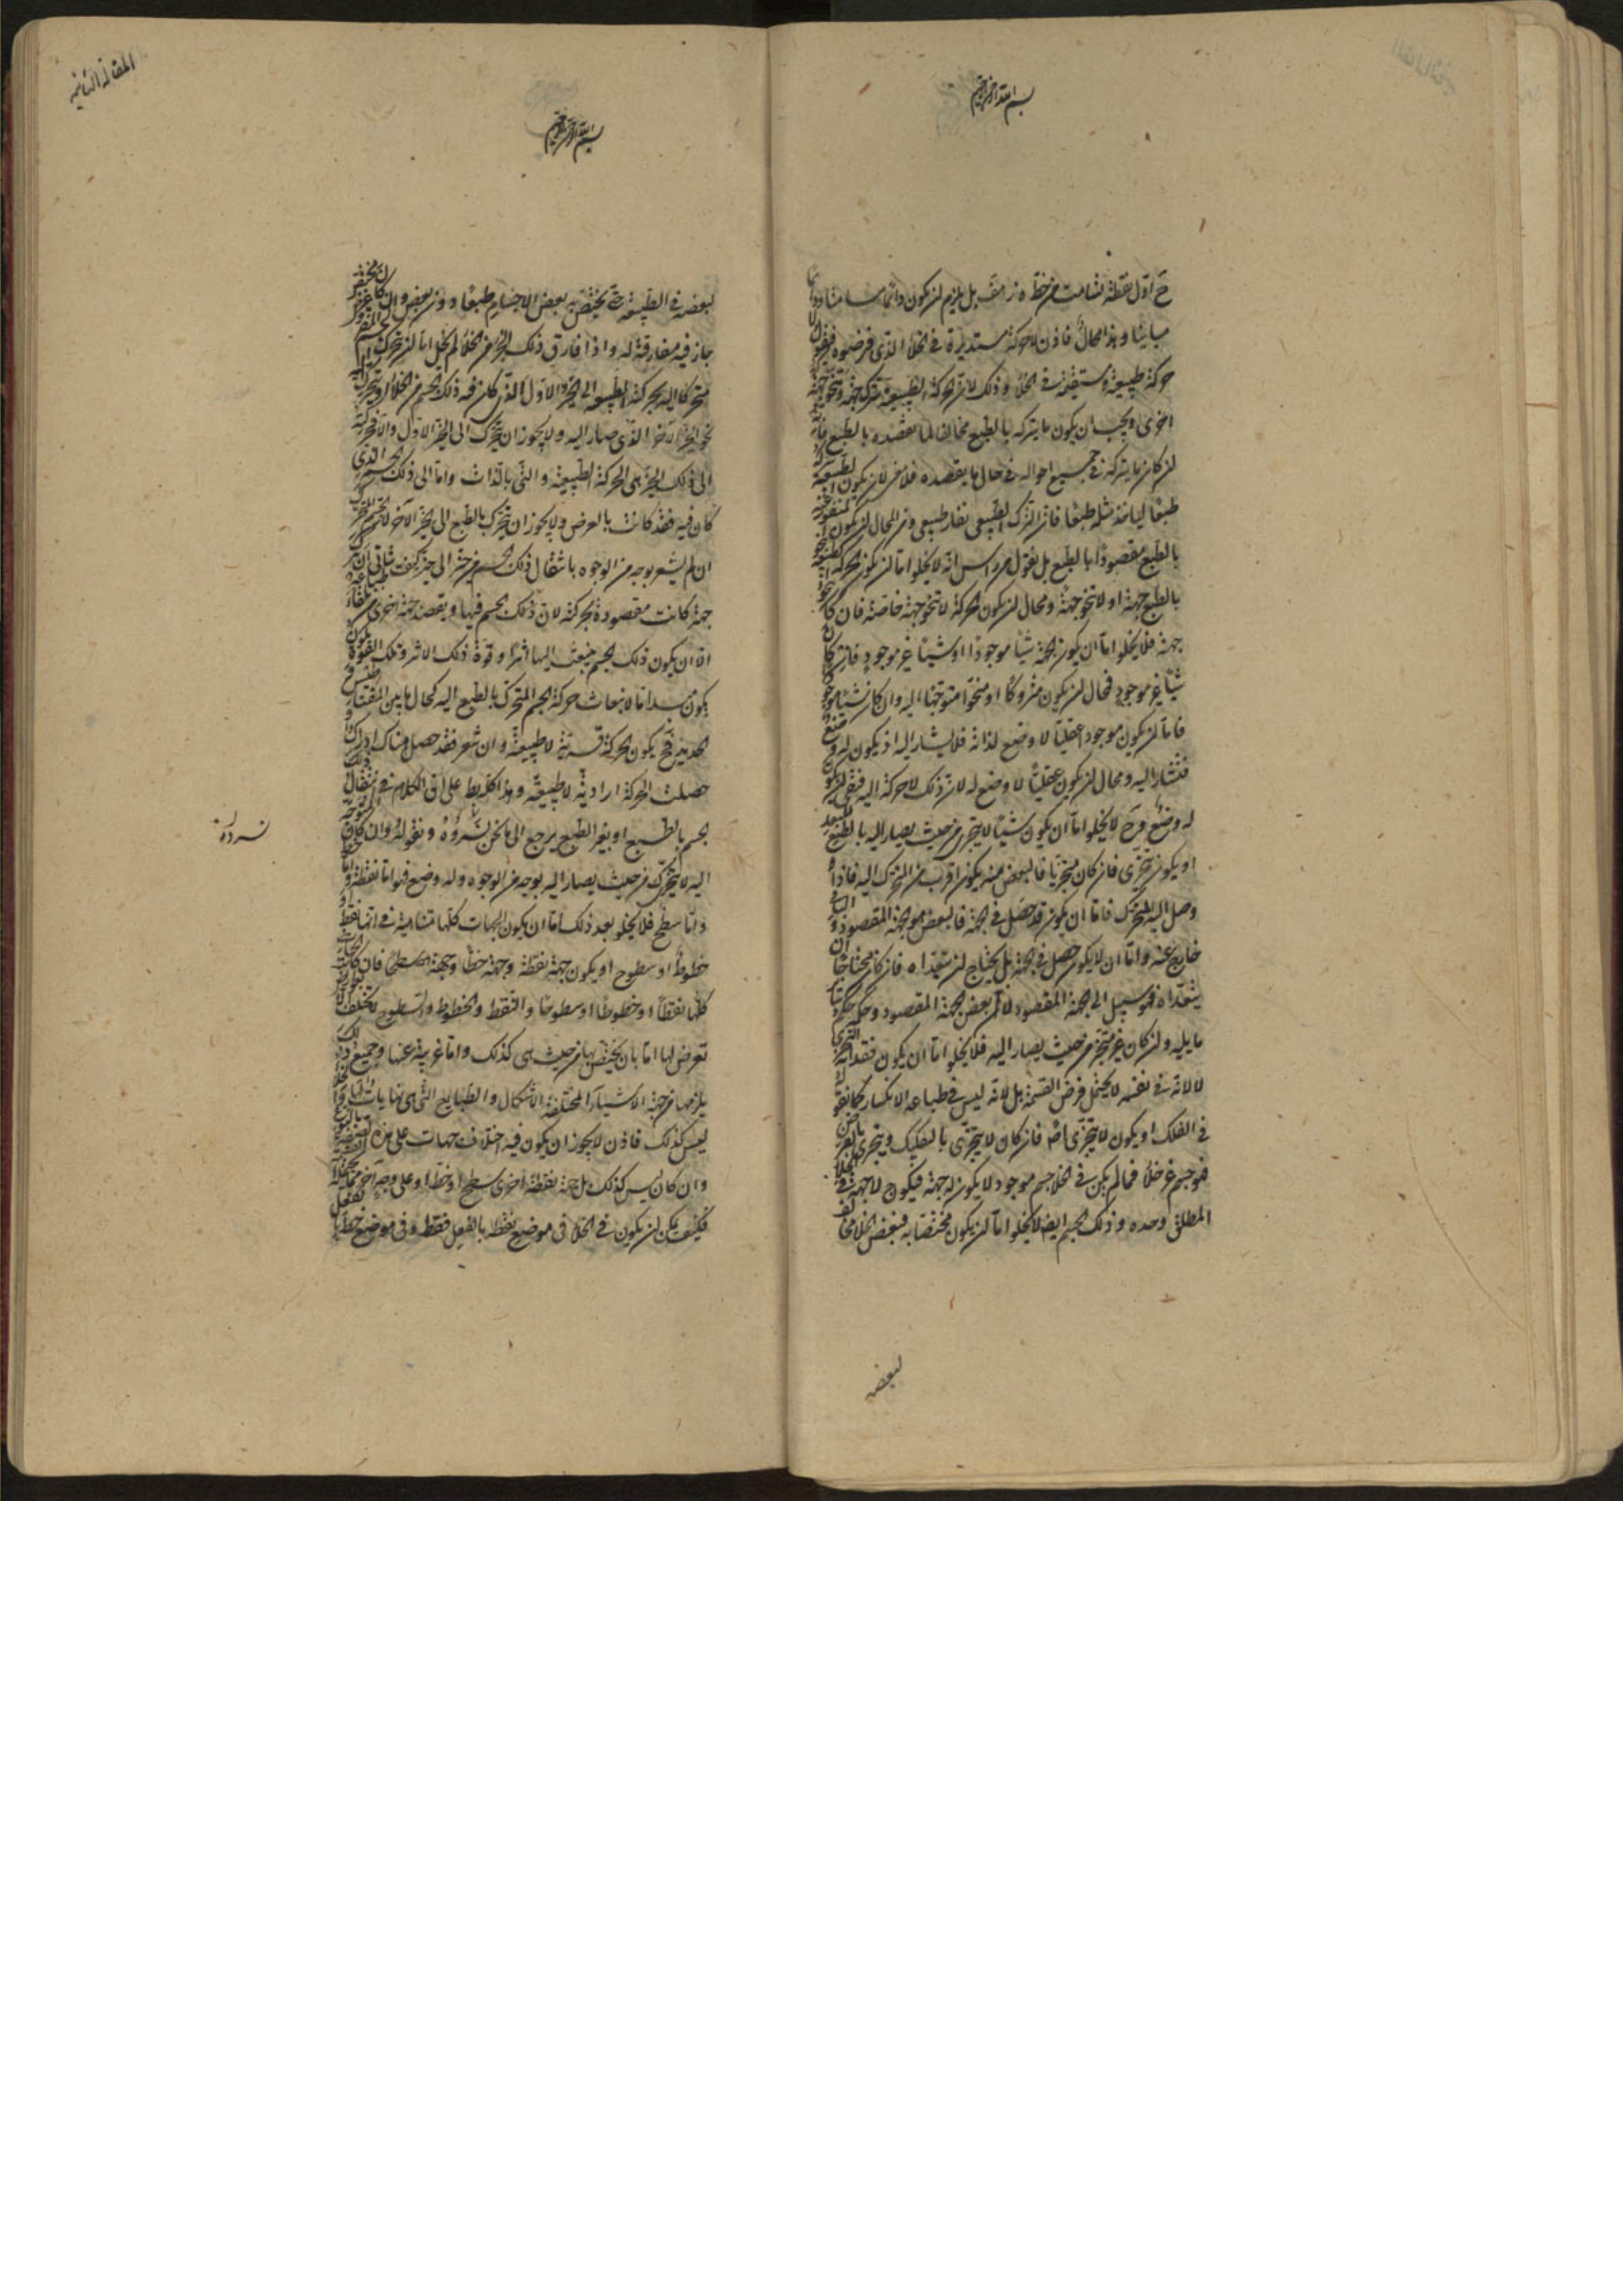 بسم الله الرحمن الرحيم
ح اول نقطة تسامت من خط ه ز بل يلزم ان يكون دائما مسامتا ودائما
مباينا وهذا محال فاذن لا حركة مستديرة في الخلأ الذي فرضوه فنقول ولا
حركة طبيعية مستقيمة في الخلأ وذلك لان الحركة الطبيعية تترك جهة وتنحو جهة
اخرى ويجب ان يكون ما يتركه بالطبع مخالفا لما يقصده بالطبع فانه
ان كان ما يتركه في جميع احواله في حال ما يقصده فلا معنى لان يكون الطبيعة تتركه
طبعا لياخذ مثله طبعا فان الترك الطبيعي نفار طبيعي ومن المحال ان يكون المنفور عنه
بالطبع مقصودا بالطبع بل نقول من رأس انه لا يخلو اما ان يكون الحركة الطبيعية تنحو
بالطبع جهة او لا تنحو جهة ومحال ان يكون الحركة لا تنحو جهة خاصة فان كان تنحو
جهة فلا يخلو اما ان يكون الجهة شيئا موجودا او شيئا غير موجود فان كان
شيئا غير موجود فمحال ان يكون متروكا او منحوا متوجها اليه وان كان شيئا موجودا
فاما ان يكون موجودا عقليا لا وضع لذاته فلا يشار اليه او يكون له وضع
فيشار اليه ومحال ان يكون عقليا لا وضع له لان ذلك لا حركة اليه فبقي ان يكون
له وضع وح لا يخلو اما ان يكون شيئا لا يتجزى من حيث يصار اليه بالطبع
او يكون يتجزى فان كان متجزيا فالبعض منه يكون اقرب من المتحرك اليه فاذا
وصل اليه المتحرك فاما ان يكون قد حصل في الجهة فالبعض هو الجهة المقصود والباقي
خارج عنه واما ان لا يكون حصل في الجهة بل يحتاج ان يتعداه فان كان محتاجا ان
يتعداه فهو سبيل الى الجهة المقصود لا ثم بعض الجهة المقصود وحكمه حكم سائر
ما يليه وان كان غير متجز من حيث يصار اليه فلا يخلو اما ان يكون فقدانه التجزي
لا لانه في نفسه لا يحتمل فرض القسمة بل لانه ليس في طباعه الانكسار كما نقوله
في الفلك او يكون لا يتجزى اصلا فان كان لا يتجزى بالتفكيك ويتجزى بالفرض
فهو جسم غير خلأ فما لم يكن في الخلا جسم موجود لا يكون له جهة فيكون لا جهة في الخلأ
المطلق وحده وذلك الجسم ايضا لا يخلو اما ان يكون مختصا به فبعض الخلأ مخالف
لبعضه
المقالة الثانية
بسم الله الرحمن الرحيم
لبعضه في الطبيعة حتى يختص به بعض الاجسام طبعا دون بعض وان كان غير مختص
جاز فيه مفارقة له واذا فارق ذلك الحيز من الخلأ لم يخل اما ان يتحرك الجسم
متحركا اليه بحركته الطبيعية الى الحيز الاول الذي كان فيه ذلك الجسم من الخلأ او يتحرك
نحو الحيز الآخر الذي صار اليه ولا يجوز ان يتحرك الى الحيز الاول والا فحركته
الى ذلك الحيز هي الحركة الطبيعية والتي بالذات واما الى ذلك الجسم الذي
كان فيه فقد كانت بالعرض ولا يجوز ان يتحرك بالطبع الى الحيز الآخر لان الجسم المتحرك
ان لم يشعر بوجه من الوجوه بانتقال ذلك الجسم من حيز الى حيز كيف يتاتى ان يترك
جهة كانت مقصودة بحركته لان ذلك الجسم فيها ويقصد جهة اخرى بطباعه
الا ان يكون ذلك الجسم ينبعث اليها اثر وقوة ذلك الاثر وتلك القوة يكون
يكون مبدأ ما لانبعاث حركة الجسم المتحرك بالطبع اليه كحال ما بين المغناطيس و
الحديد فح يكون الحركة قسرية لا طبيعية وان شعر فقد حصل هناك ادراك
حصلت الحركة ارادية لا طبيعية وهذا كله باطل على ان الكلام في انتقال ذلك
الجسم بالطبع او بغير الطبع يرجع الى ما نحن نسرده ونقوله وان كان المتوجه
نسرده
اليه لا يتحرك من حيث يصار اليه بوجه من الوجوه وله وضع فهو اما نقطة واما خط
واما سطح فلا يخلو بعد ذلك اما ان يكون الجهات كلها متشابهة في انها نقط او
خطوط او سطوح او يكون جهة نقطة وجهة خطا وجهة سطحا فان كانت الجهات
كلها نقطا او خطوطا او سطوحا والنقط والخطوط والسطوح لا تختلف
تعرض لها اما بان يختص بها من حيث هي كذلك واما غريبة عنها وجميع ذلك
يلزمها من جهة الاشياء المختلفة الاشكال والطبايع التي هي نهايات لها والخلأ
ليس كذلك فاذن لا يجوز ان يكون فيه اختلاف جهات على هذه الصفة بالنوع
وان كان ليس كذلك بل جهة نقطة اخرى سطح او خط او على وجه آخر مما يحتمله القسمة
فكيف يمكن ان يكون في الخلأ في موضع نقطة بالفعل فقط وفي موضع خط بالفعل